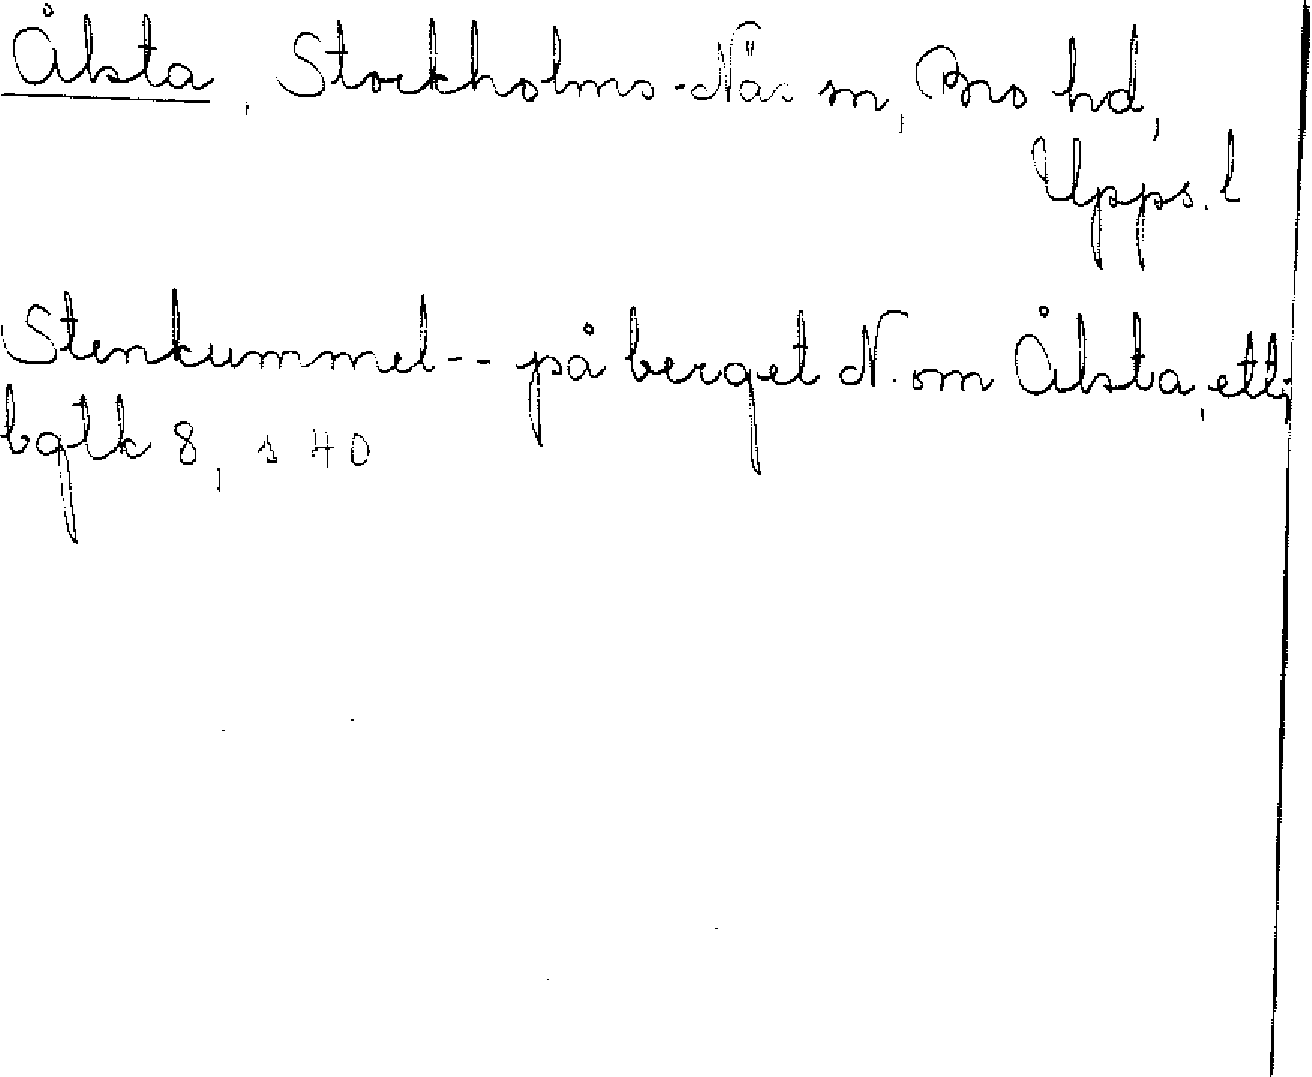 Åksta, Stockholms-Näs sn, Bro hd,
Upps. l
Stenkummel -- på berget N. om Åksta, ett,
bglk 8, s 40